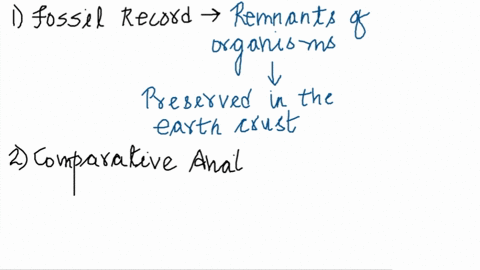 1) Fossil Record → Remnants of
organisms
↓
Preserved in the
earth crust
2) Comparative Anal